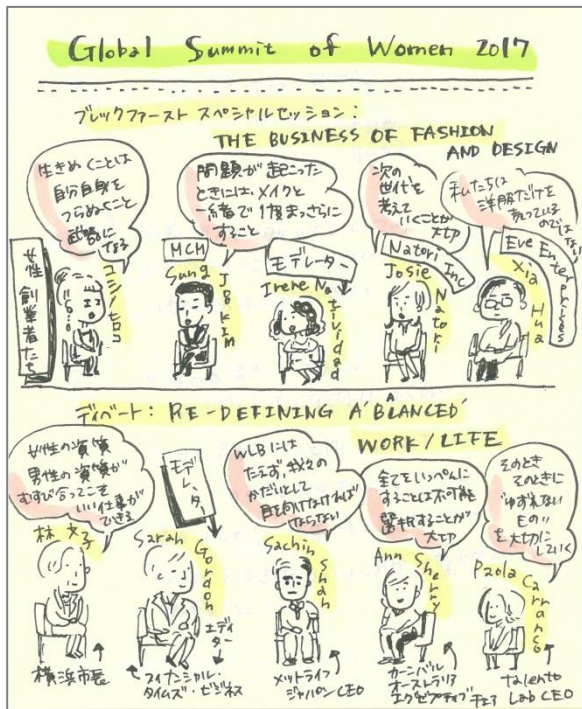 Global Summit of Women 2017
ブレックファースト スペシャルセッション:
THE BUSINESS OF FASHION
AND DESIGN
女性創業者たち
生きぬくことは
自分自身を
つらぬくこと
武器にする
コシノヒロコ
問題が起こった
ときには、メイクと
一緒で1度まっさらに
すること
MCM
Sung Joo Kim
モデレーター
Irene Natividad
次の
世代を
考えて
いくことが
大切
Natori Inc
Josie Natori
私たちは
洋服だけを
売っている
のでは
ない
Eve Enterprises
Xia Hua
ディベート: RE-DEFINING A 'BLANCED'
A
WORK/LIFE
女性の資質
男性の資質が
むすび合ってこそ
いい仕事が
できる
林 文子
横浜市長
モデレーター
Sarah Gordon
エディター
フィナンシャル・
タイムズ・ビジネス
WLBには
たえず、我々の
かだいとして
目を向けなければ
ならない
Sachin Shah
メットライフ
ジャパンCEO
全てをいっぺんに
することは不可能
選択することが
大切
Ann Sherry
カーニバル
オーストラリア
エグゼクティブ チェア
そのとき
そのときに
"ゆずれない
もの"
を大切に
していく
Paola Carranco
talento
Lab CEO